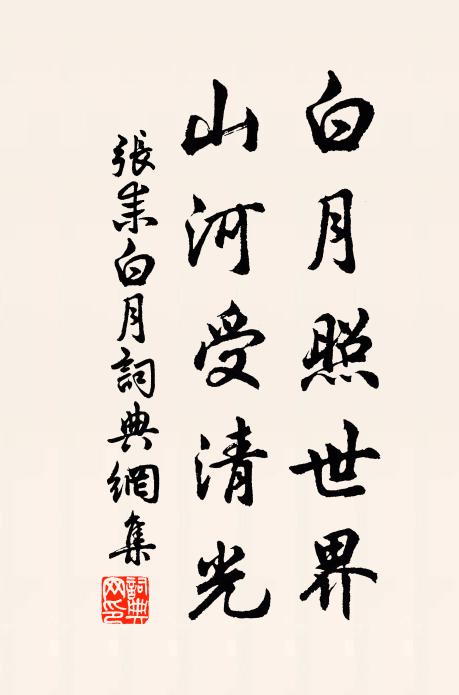 白月照世界
山河受清光
張耒白月詞典網集
詞典網印